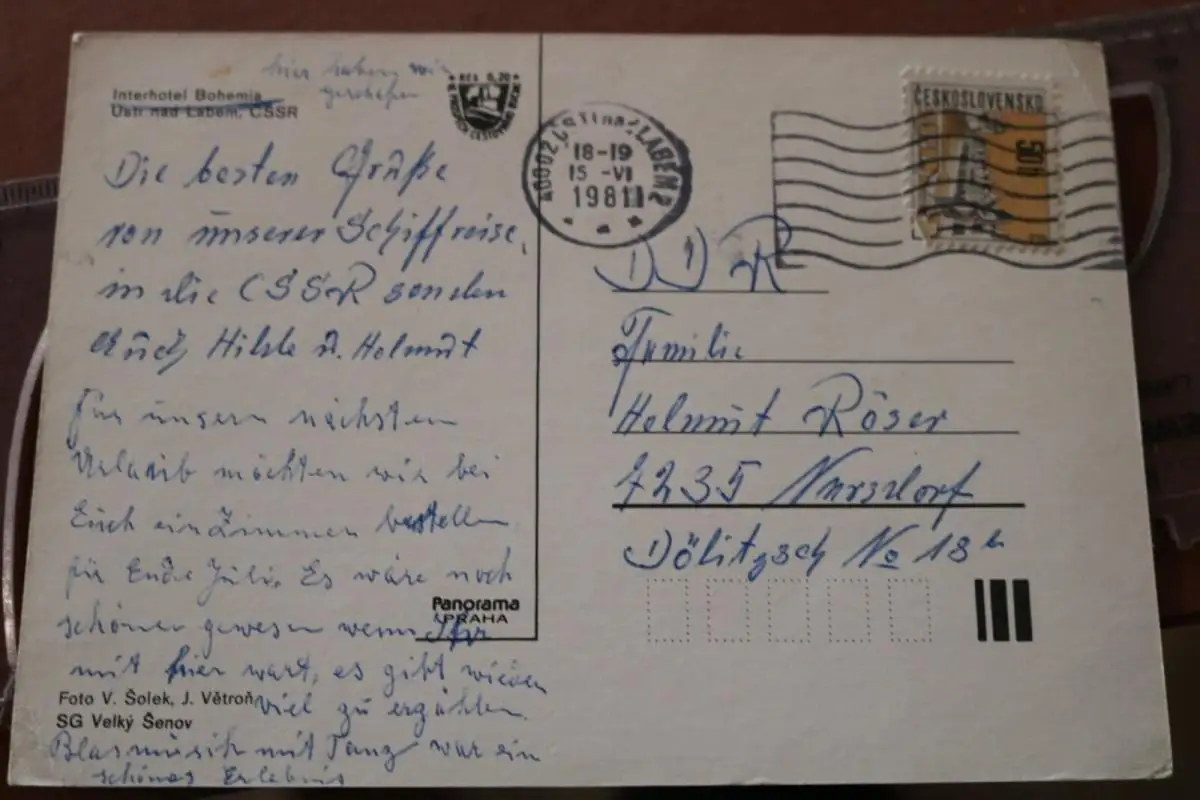 hier haben wir
geschlafen
Interhotel Bohemia
Ústí nad Labem, ČSSR
Die besten Grüße
von unserer Schiffreise,
in die CSSR senden
Euch Hilde u. Helmut
Für unsern nächsten
Urlaub möchten wir bei
Euch ein Zimmer bestellen
für Ende Juli. Es wäre noch
schöner gewesen wenn Ihr
mit hier wart, es gibt wieder
viel zu erzählen.
Blasmusik mit Tanz war ein
schönes Erlebnis
Panorama
PRAHA
Foto V. Šolek, J. Větroň
SG Velký Šenov
40002 ÚSTÍ nad LABEM 2
18-19
15 -VI
1981
ČESKOSLOVENSKO
50h
DDR
Familie
Helmut Röser
7235 Narsdorf
Dölitzsch No 18b